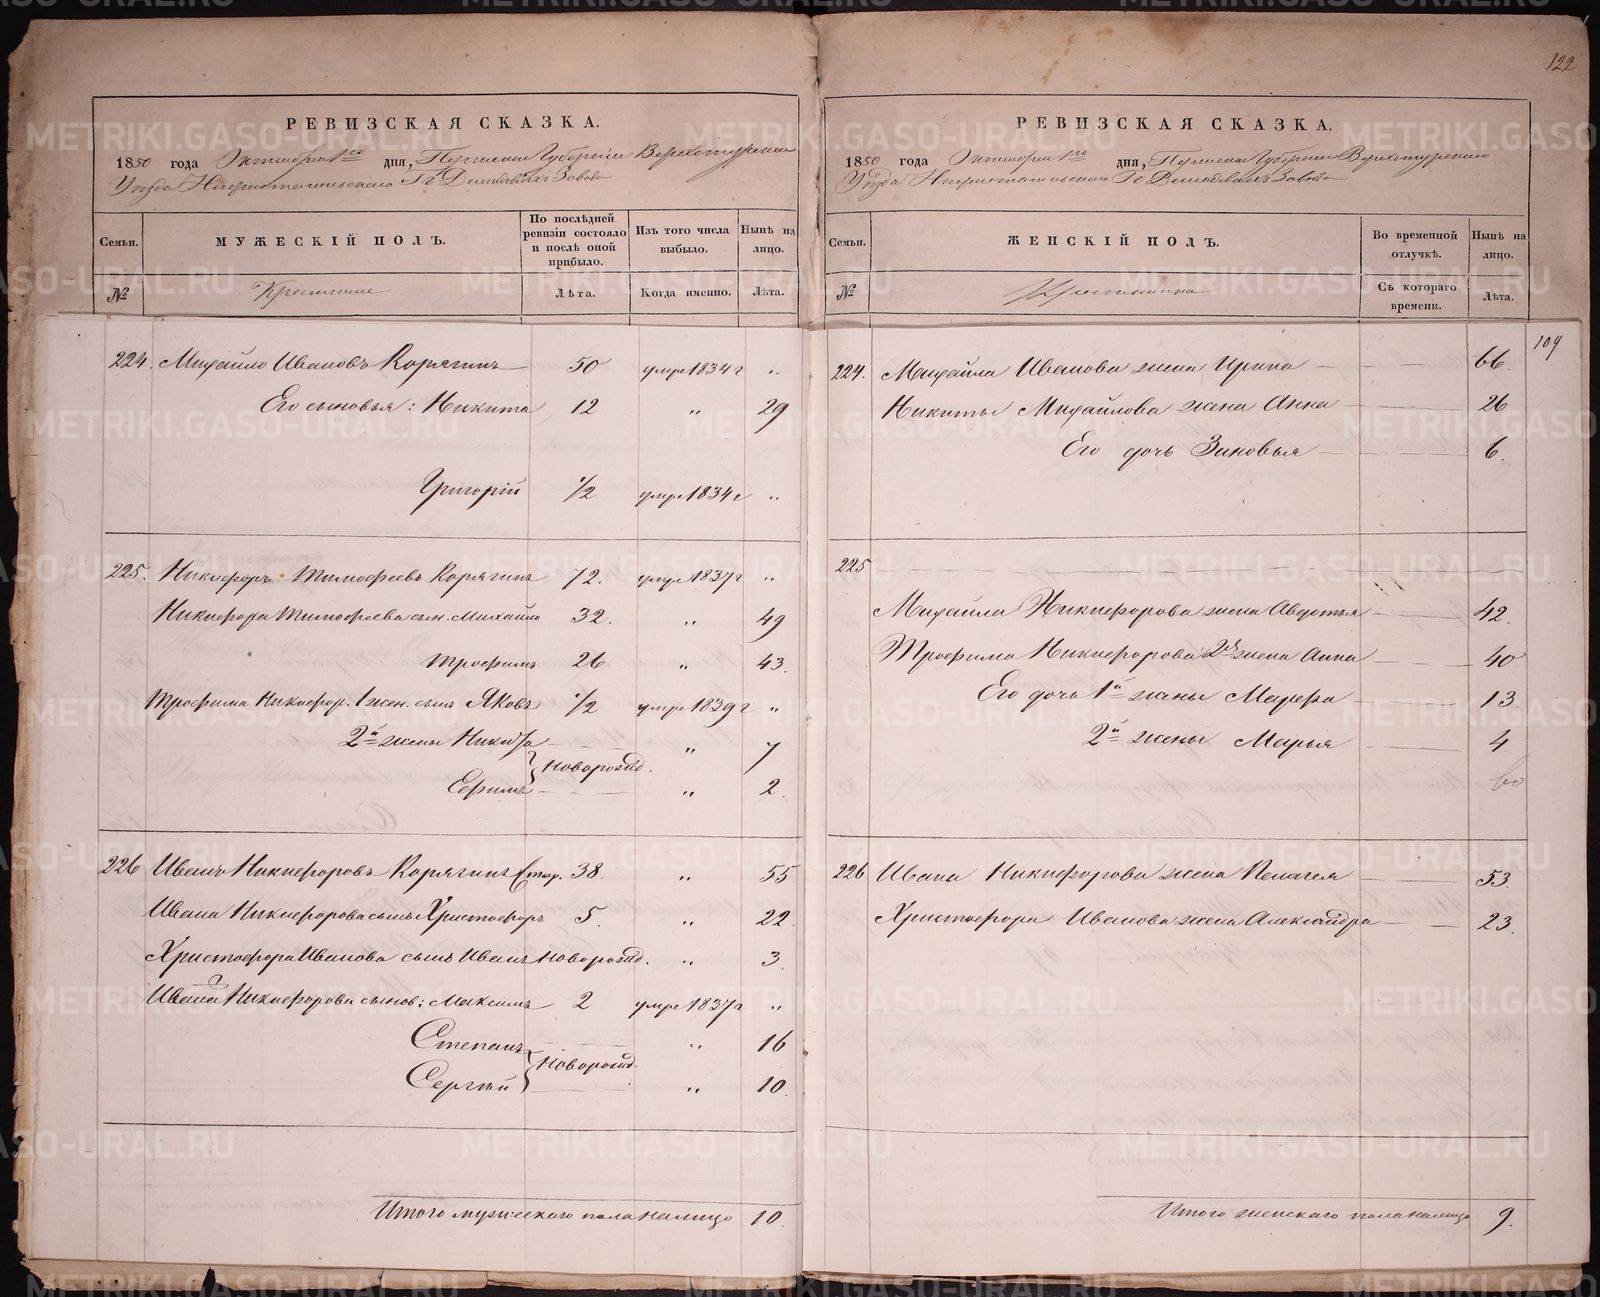 122
РЕВИЗСКАЯ СКАЗКА.
1850 года Октября 1го дня, Пермской Губерніи Верхотурскаго
Уѣзда Гг Демидовыхъ Завода
Семьи.
МУЖЕСКІЙ ПОЛЪ.
По послѣдней ревизіи состояло и послѣ оной прибыло.
Изъ того числа выбыло.
Нынѣ на лицо.
№
Крестьяне
Лѣта.
Когда именно.
Лѣта.
224. Михайло Ивановъ Корягинъ 50 умре 1834 г „
Его сыновья: Никита 12 „ 29
Григорій 1/2 умре 1834 г „
225. Никифоръ Тимофеевъ Корягинъ 72. умре 1837 г „
Никифора Тимофеева сын. Михайло 32. „ 49
Трофимъ 26 „ 43.
Трофима Никифор. 1 жен. сынъ Яковъ 1/2 умре 1839 г „
2й жены Никита „ 7
новорожд.
Ефимъ „ 2.
226 Иванъ Никифоровъ Корягинъ 38. „ 55
Ивана Никифорова сынъ Христофоръ 5. „ 22
Христофора Иванова сынъ Иванъ новорожд. „ 3.
Ивана Никифорова сынов: Максимъ 2 умре 1837 г „
Степанъ „ 16
новорожд.
Сергѣй „ 10.
Итого мужескаго пола налицо 10.
РЕВИЗСКАЯ СКАЗКА.
1850 года Октября 1го дня, Пермской Губерніи Верхотурскаго
Уѣзда Гг Демидовыхъ Завода
Семьи.
ЖЕНСКІЙ ПОЛЪ.
Во временной отлучкѣ.
Нынѣ на лицо.
№
Крестьянки
Съ котораго времени.
Лѣта.
109
224. Михайла Иванова жена Ирина 66.
Никиты Михайлова жена Анна 26
Его дочь Зиновья 6.
225
Михайла Никифорова жена Авдотья 42.
Трофима Никифорова 2я жена Анна 40
Его дочь 1й жены Марфа 13.
2й жены Марья 4
226 Ивана Никифорова жена Пелагея 53.
Христофора Иванова жена Александра 23.
Итого женскаго пола налицо 9.
METRIKI.GASO-URAL.RU